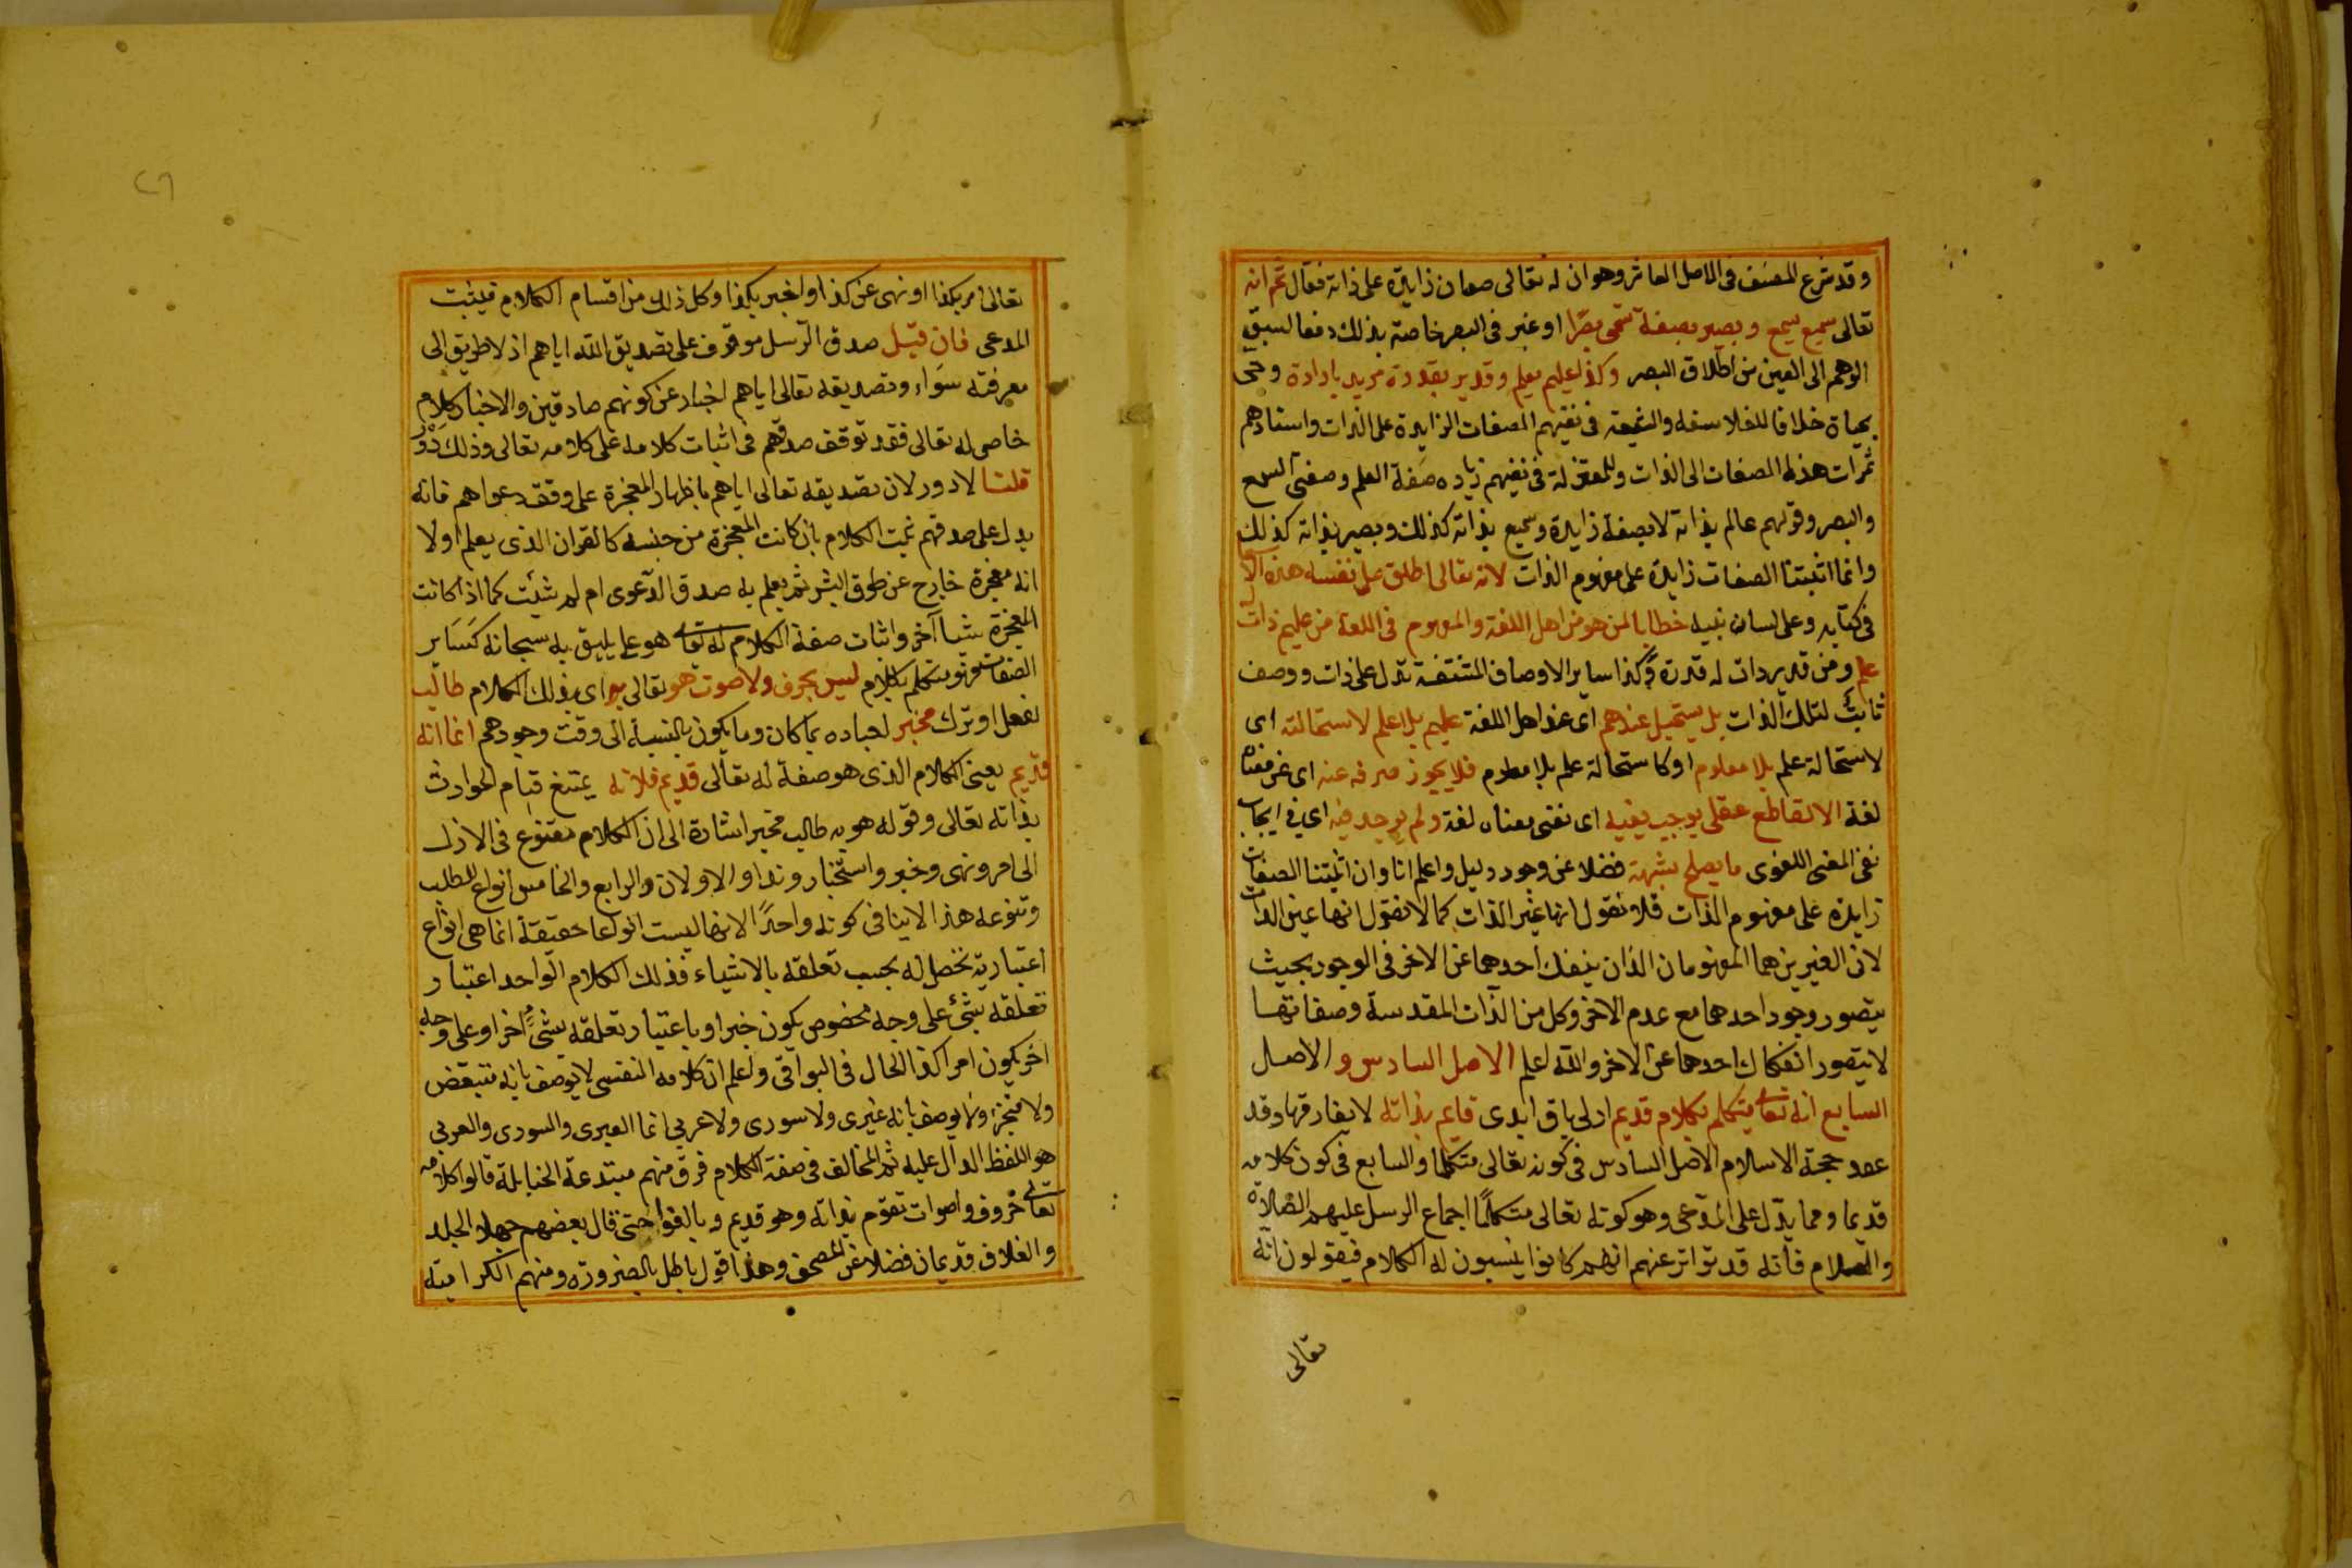 وقد شرع المصنف فى الاصل العاشر وهو ان له تعالى صفات زايدة على ذاته فقال ثم انه
تعالى سميع بسمع وبصير بصفة تسمى بصرا او عبر فى البصر خاصة بذلك دفعا لسبق
الوهم الى العين من اطلاق البصر وكذا عليم بعلم وقدير بقدرة مريد بارادة وحى
بحياة خلافا للفلاسفه والشيعة فى نفيهم الصفات الزايدة على الذات واسنادهم
ثمرات هذه الصفات الى الذات وللمعتزلة فى نفيهم زياده صفة العلم وصفتى السمع
والبصر وقولهم عالم بذاته لا بصفة زايدة وسميع بذاته كذلك وبصير بذاته كذلك
وانما اثبتنا الصفات زايدة على مفهوم الذات لانه تعالى اطلق على نفسه هذه الاسما
فى كتابه وعلى لسان نبيه خطابا لمن هو من اهل اللغة والمفهوم فى اللغة من عليم ذات له
علم ومن قدير ذات له قدرة وكذا ساير الاوصاف المشتقة تدل على ذات ووصف
ثابت لتلك الذات بل يستحيل عندهم اى عند اهل اللغة عليم بلا علم لاستحالته اى
لاستحالة علم بلا معلوم او كاستحالة علم بلا معلوم فلا يجوز صرفه عنه اى عن معناه
لغة الا لقاطع عقلى يوجب نفيه اى نفى معناه لغة ولم يوجد فيه اى فى ايجاب
نفى المعنى اللغوى ما يصلح شبهة فضلا عن وجود دليل واعلم انا وان اثبتنا الصفات
زايدة على مفهوم الذات فلا نقول انها غير الذات كما لا نقول انها عين الذات
لان الغيرين هما المفهومان الذان ينفك احدهما عن الاخر فى الوجود بحيث
يتصور وجود احدهما مع عدم الاخر وكل من الذات المقدسة وصفاتها
لا يتصور انفكاك احدهما عن الاخر والله اعلم الاصل السادس و الاصل
السابع انه تعالى متكلم بكلام قديم ازلى باق ابدى قايم بذاته لا يفارقها وقد
عقد حجة الاسلام الاصل السادس فى كونه تعالى متكلما والسابع فى كون كلامه
قديما ومما يدل على المدعى وهو كونه تعالى متكلما اجماع الرسل عليهم الصلاة
والسلام فانه قد تواتر عنهم انهم كانوا ينسبون له الكلام فيقولون انه
تعالى
تعالى امر بكذا او نهى عن كذا او اخبر بكذا وكل ذلك من اقسام الكلام فيثبت
المدعى فان قيل صدق الرسل موقوف على تصديق الله اياهم اذ لا طريق الى
معرفته سواء وتصديقه تعالى اياهم اخبار عن كونهم صادقين والاخبار كلام
خاص له تعالى فقد توقف صدقهم فى اثبات كلامه على كلامه تعالى وذلك دور
قلنا لا دور لان تصديقه تعالى اياهم باظهار المعجزة على وفق دعواهم فانه
يدل على صدقهم ثبت الكلام بان كانت المعجزة من جنسه كالقران الذى يعلم اولا
انه معجزة خارج عن طوق البشر ثم يعلم به صدق الدعوى ام لم تثبت كما اذا كانت
المعجزة شيا آخر واثبات صفة الكلام له تعالى هو على ما يليق به سبحانه كسَاير
الصفات فهو متكلم بكلام ليس بحرف ولا صوت هو تعالى به اى بذلك الكلام طالب
لفعل او ترك مخبر لعباده بما كان وما يكون بالنسبة الى وقت وجودهم اما انه
قديم يعنى الكلام الذى هو صفة له تعالى قديم فلانه يمتنع قيام الحوادث
بذاته تعالى وقوله هو به طالب مخبر اشارة الى ان الكلام متنوع فى الازل
الى امر ونهى وخبر واستخبار ونداء والاولان والرابع والخامس انواع للطلب
وتنوعه هذا لا ينافى كونه واحدًا لانها ليست انواعا حقيقة انما هى انواع
اعتبارية تحصل له بحسب تعلقه بالاشياء فذلك الكلام الواحد اعتبار
تعلقه بشئ على وجه مخصوص يكون خبرا وباعتبار تعلقه بشئ اخر او على وجه
اخر يكون امرا كذا الحال فى البواقى واعلم ان كلامه النفسى لا يوصف بانه متبعض
ولا متجزء ولا يوصف بانه عبرى ولا سورى ولا عربى انما العبرى والسورى والعربى
هو اللفظ الدال عليه ثم المخالف فى صفة الكلام فرق منهم مبتدعة الحنابلة قالوا كلامه
تعالى حروف واصوات تقوم بذاته وهو قديم وبالغوا حتى قال بعضهم جهلا الجلد
والغلاف قديمان فضلا عن المصحف وهذا قول باطل بالضرورة ومنهم الكرامية